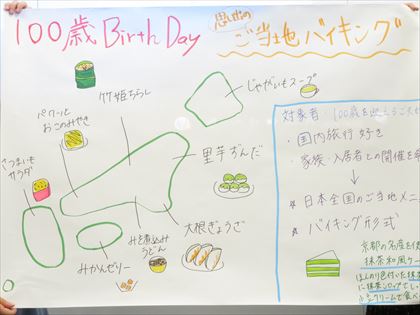 100歳 Birth Day 思い出の ご当地バイキング
竹姫ちらし
じゃがいもスープ
パクッと
おこのみやき
さつまいも
サラダ
里芋ずんだ
大根ぎょうざ
みそ煮込み
うどん
みかんゼリー
対象者 100歳を迎えるご入
・国内旅行好き
・家族・入居者との開催を希
↓
☆ 日本全国のご当地メニ
☆ バイキング形式
京都の名産を使
抹茶和風ケー
ほんのり色付いた抹茶
に抹茶シロップでしっ
クリームで食べ